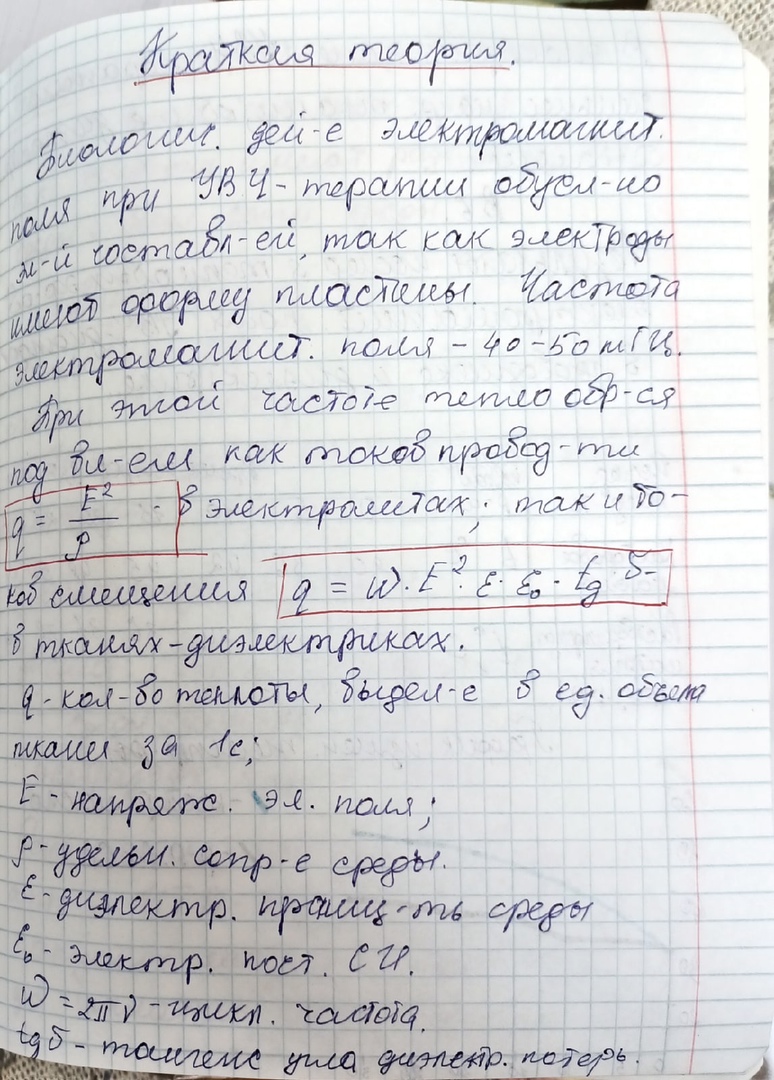 Краткая теория.
Биологич. дей-е электромагнит.
поля при УВЧ-терапии обусл-но
эл-й составл-ей, так как электроды
имеют форму пластины. Частота
электромагнит. поля - 40-50 мГц.
При этой частоте тепло обр-ся
под вл-ем как токов провод-ти
q = E²/ρ - в электролитах; так и то-
ков смещения q = ω·E²·ε·ε₀·tg δ-
в тканях-диэлектриках.
q - кол-во теплоты, выдел-е в ед. объема
ткани за 1с;
E - напряж. эл. поля;
ρ - удельн. сопр-е среды.
ε - диэлектр. прониц-ть среды
ε₀ - электр. пост. СИ.
ω = 2πν - цикл. частота.
tg δ - тангенс угла диэлектр. потерь.